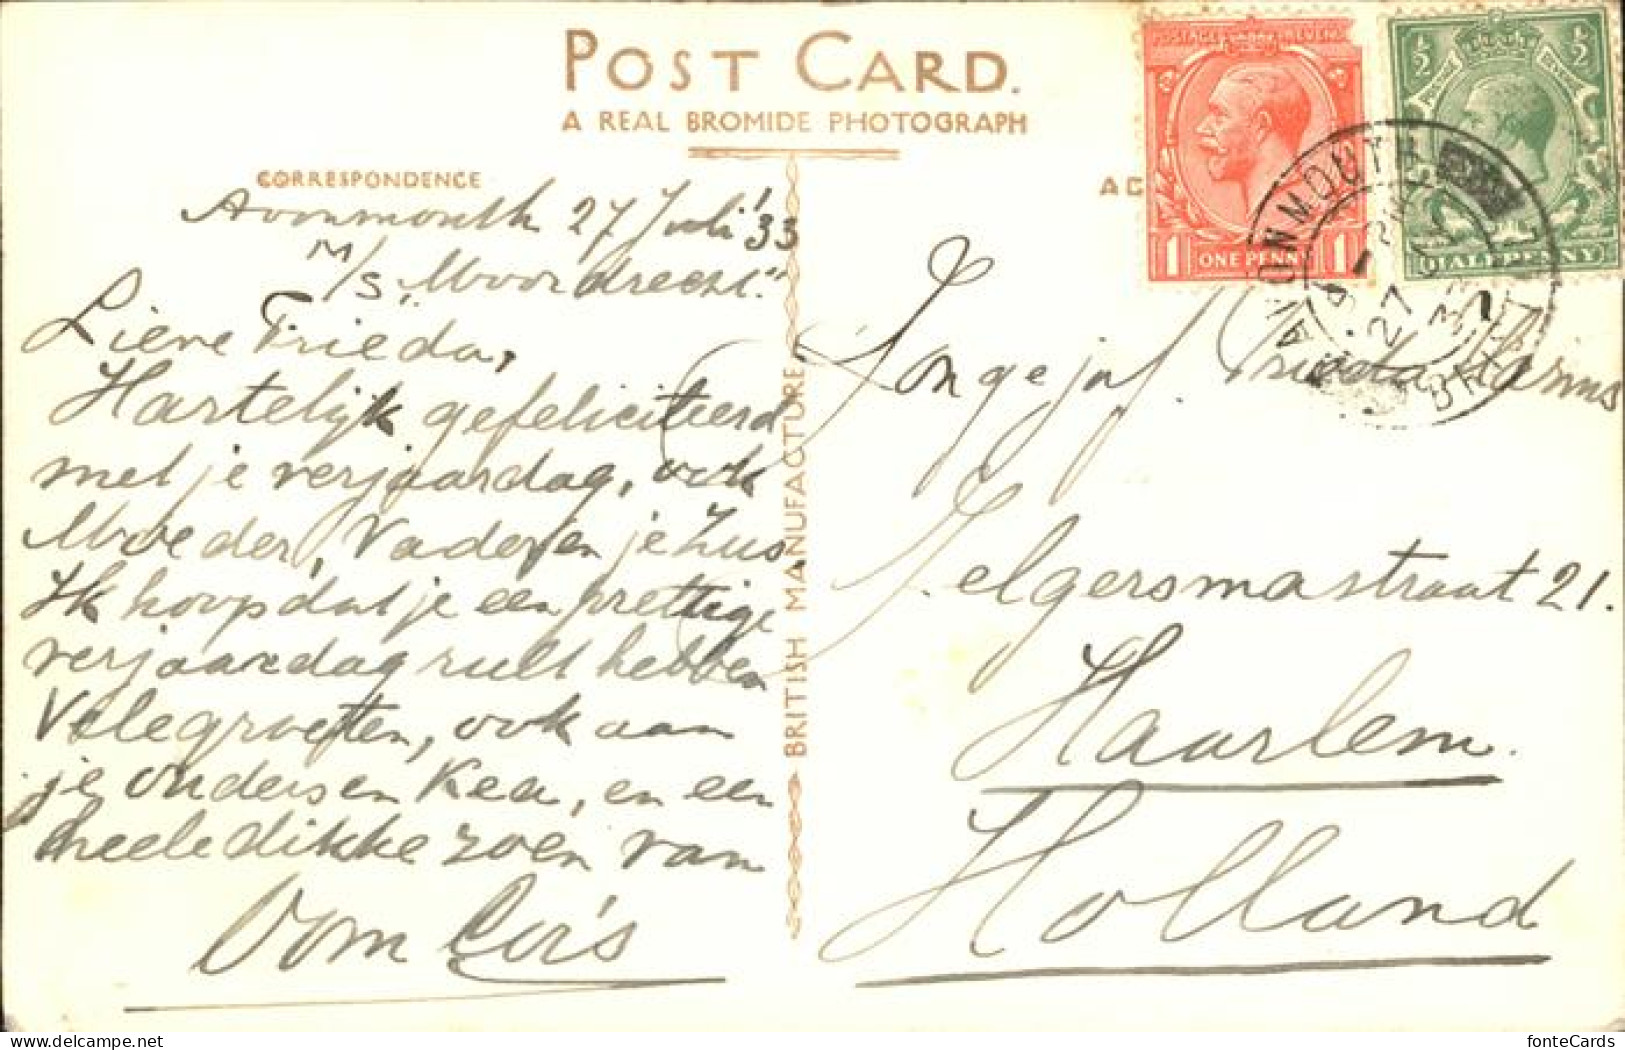 POST CARD.
A REAL BROMIDE PHOTOGRAPH
CORRESPONDENCE
BRITISH MANUFACTURE
Avonmouth 27 Juli '33
M/S „Moordrecht"
Lieve Frieda,
Hartelijk gefeliciteerd
met je verjaardag, ook
Moeder, Vader en je Zus.
Ik hoop dat je een prettige
verjaardag zult hebben
Vele groeten, ook aan
je ouders en Kea, en een
heele dikke zoen van
Oom Cor's
POSTAGE REVENUE
1 ONE PENNY 1
½ ½
HALFPENNY
AVONMOUTH
27 JY
33
BRIST
Jongejuf. Frieda Harms
Jelgersmastraat 21.
Haarlem.
Holland
fonteCards